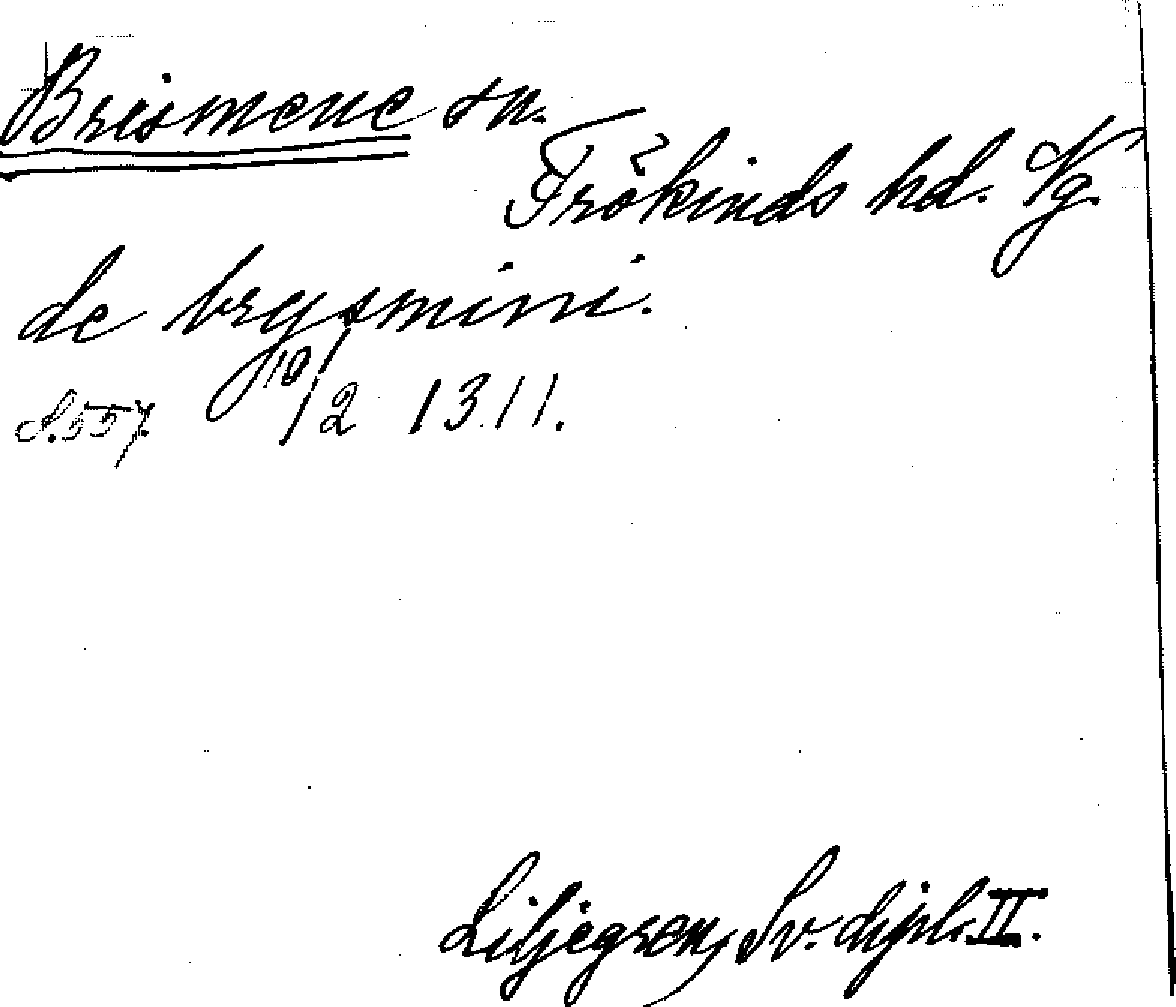 Brismene sn.
Frökinds hd. Vg.
de brysmini.
S. 557. 10/2 1311.
Liljegren, Sv. dipl. II.